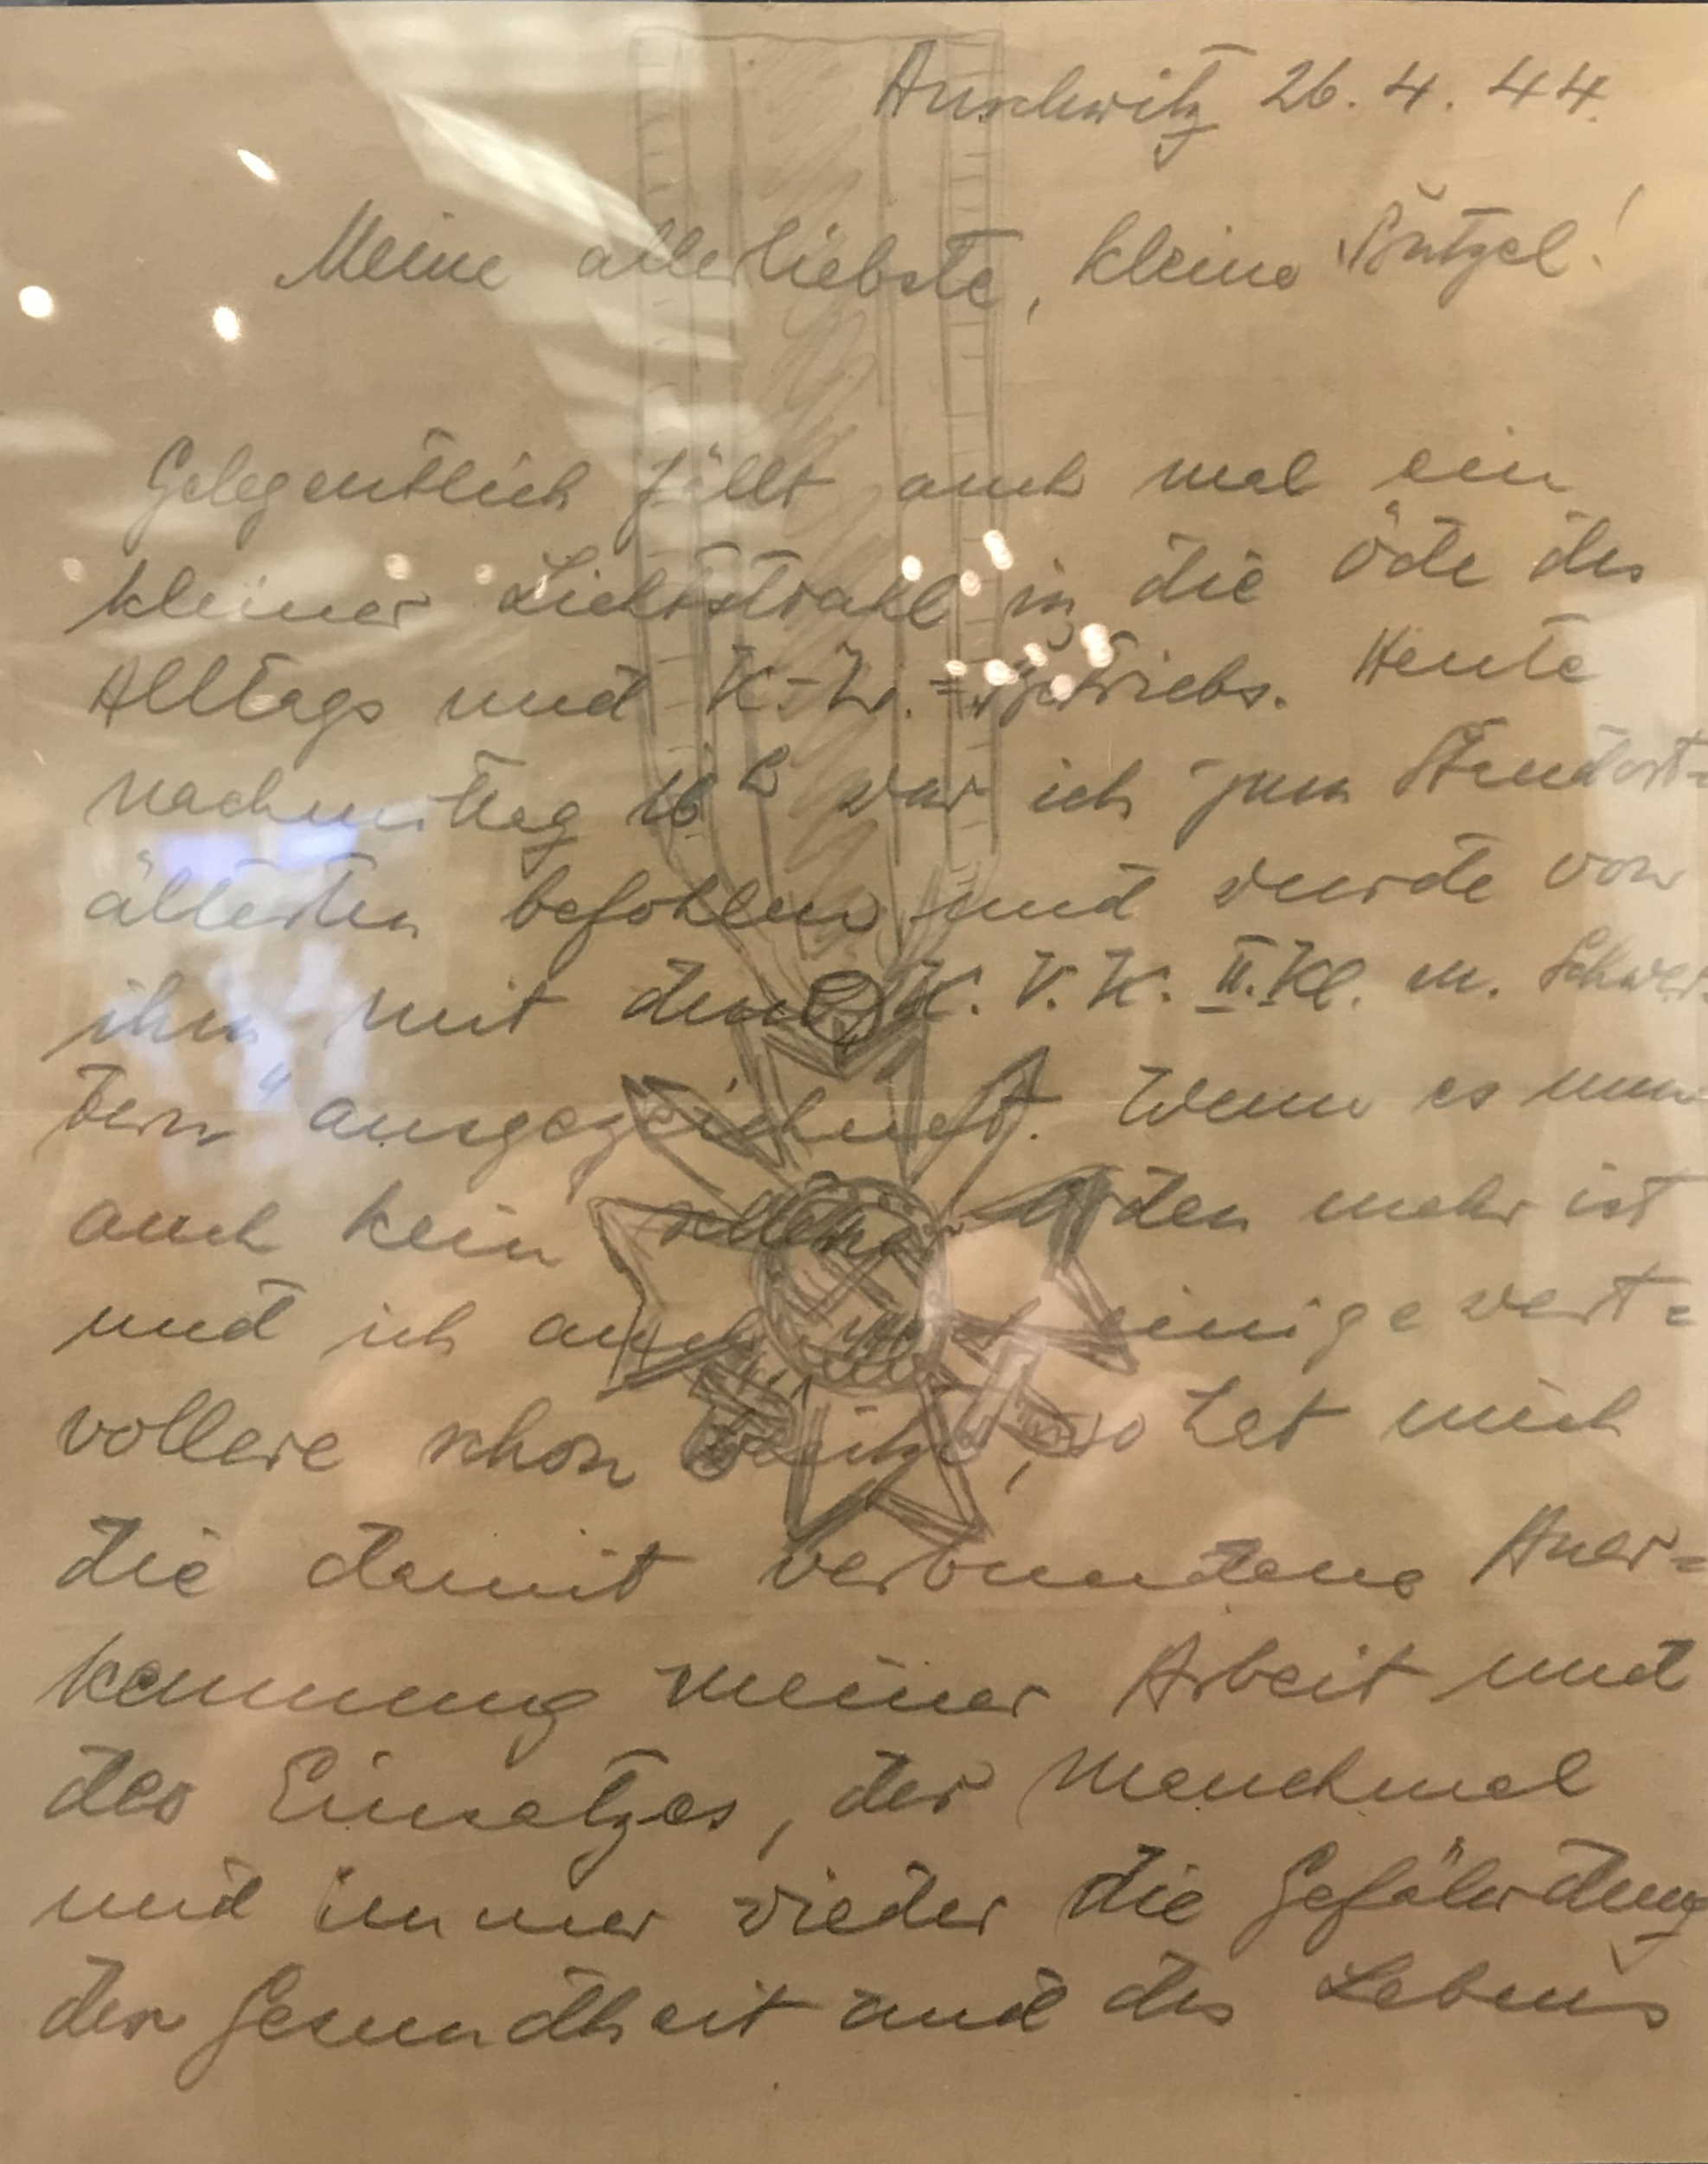 Auschwitz 26.4.44.
Meine allerliebste, kleine Putzel!
Gelegentlich fällt auch mal ein
kleiner Lichtstrahl in die Öde des
Alltags und K.-L.=Betriebs. Heute
nachmittag 16h war ich zum Standort=
ältesten befohlen und wurde von
ihm mit dem K.V.K. II.Kl. m. Schwer
tern" ausgezeichnet. Wenn es nun
auch kein seltener Orden mehr ist
und ich auch einige wert=
vollere schon besitze, so hat mich
die damit verbundene Aner=
kennung meiner Arbeit und
des Einsatzes, der manchmal
und immer wieder die Gefährdung
der Gesundheit und des Lebens